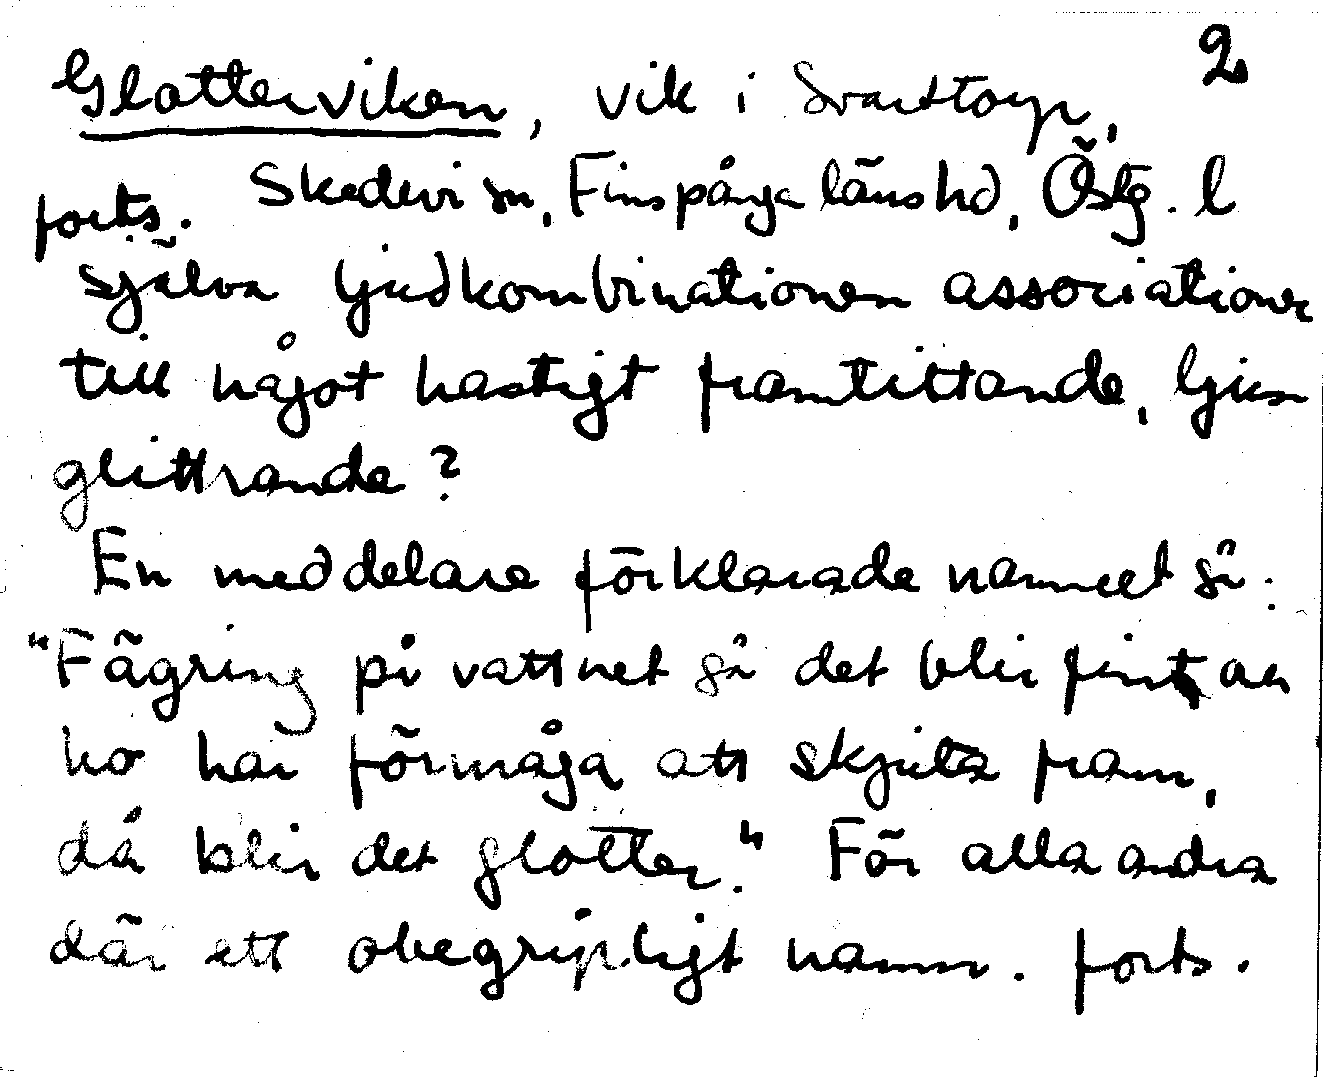 2
Glotterviken, vik i Svartorp,
forts. Skedevi sn, Finspånga läns hd, Östg. l
själva ljudkombinationen associationer
till något hastigt framtittande, ljus
glittrande?
En meddelare förklarade namnet så:
"Fägring på vattnet så det blir fint
ho har förmåga att skjuta fram,
då blir det glotter." För alla andra
där ett obegripligt namn. forts.